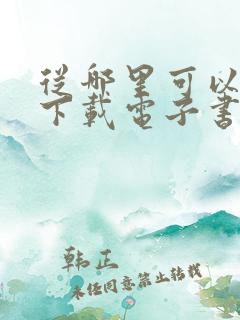 從哪里可以
下載電子書
韩正
未任同意禁止转载